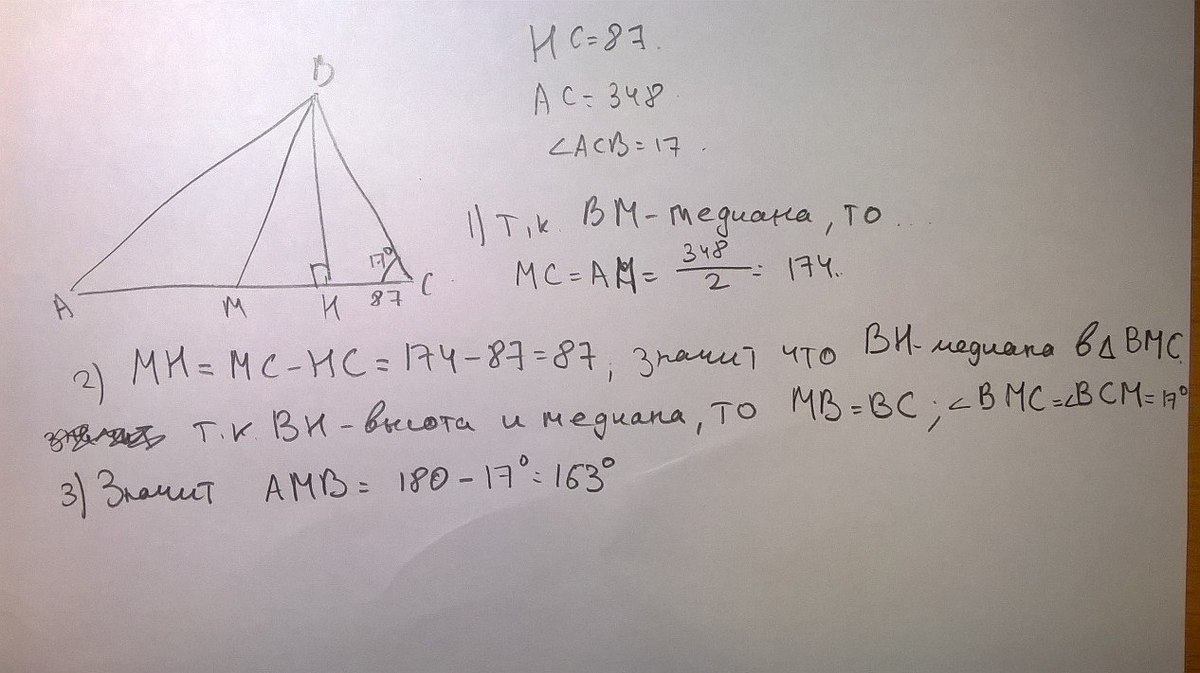 B
HC=87.
AC=348.
∠ACB=17.
17°
A
M
H
87
C
1) Т.к. BM-медиана, то ...
MC=AM=348/2=174..
2) MH=MC-HC=174-87=87; значит что BH-медиана в△BMC.
т.к. BH-высота и медиана, то MB=BC; ∠BMC=∠BCM=17°
3) Значит AMB=180-17°=163°